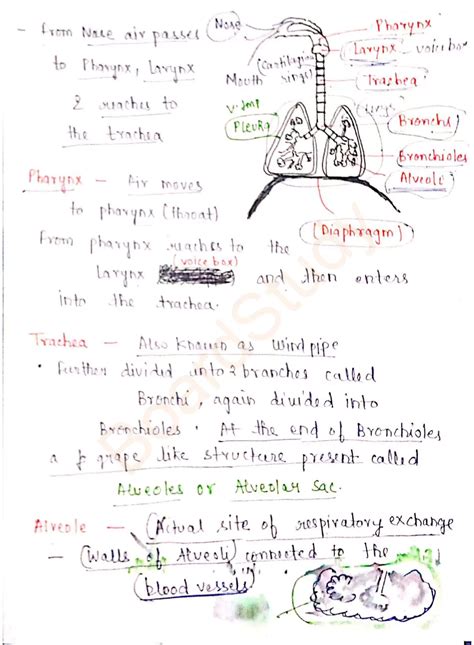 - From Nose air passes
to Pharynx, Larynx
& reaches to
the trachea
Nose
Pharynx
Larynx voice box
(Cartilaginous
rings)
Mouth
Trachea
V. Imp
Pleura
Bronchi
Bronchioles
Alveoli
(Diaphragm)
Pharynx - Air moves
to pharynx (throat)
From pharynx reaches to the
(voice box)
larynx and then enters
into the trachea.
Trachea - Also known as wind pipe
• Further divided into 2 branches called
Bronchi, again divided into
Bronchioles. At the end of Bronchioles
a grape like structure present called
Alveoles or Alveolar Sac.
Alveole - (Actual site of respiratory exchange
- (Walls of Alveoli) connected to the
blood vessels
BoardStudy